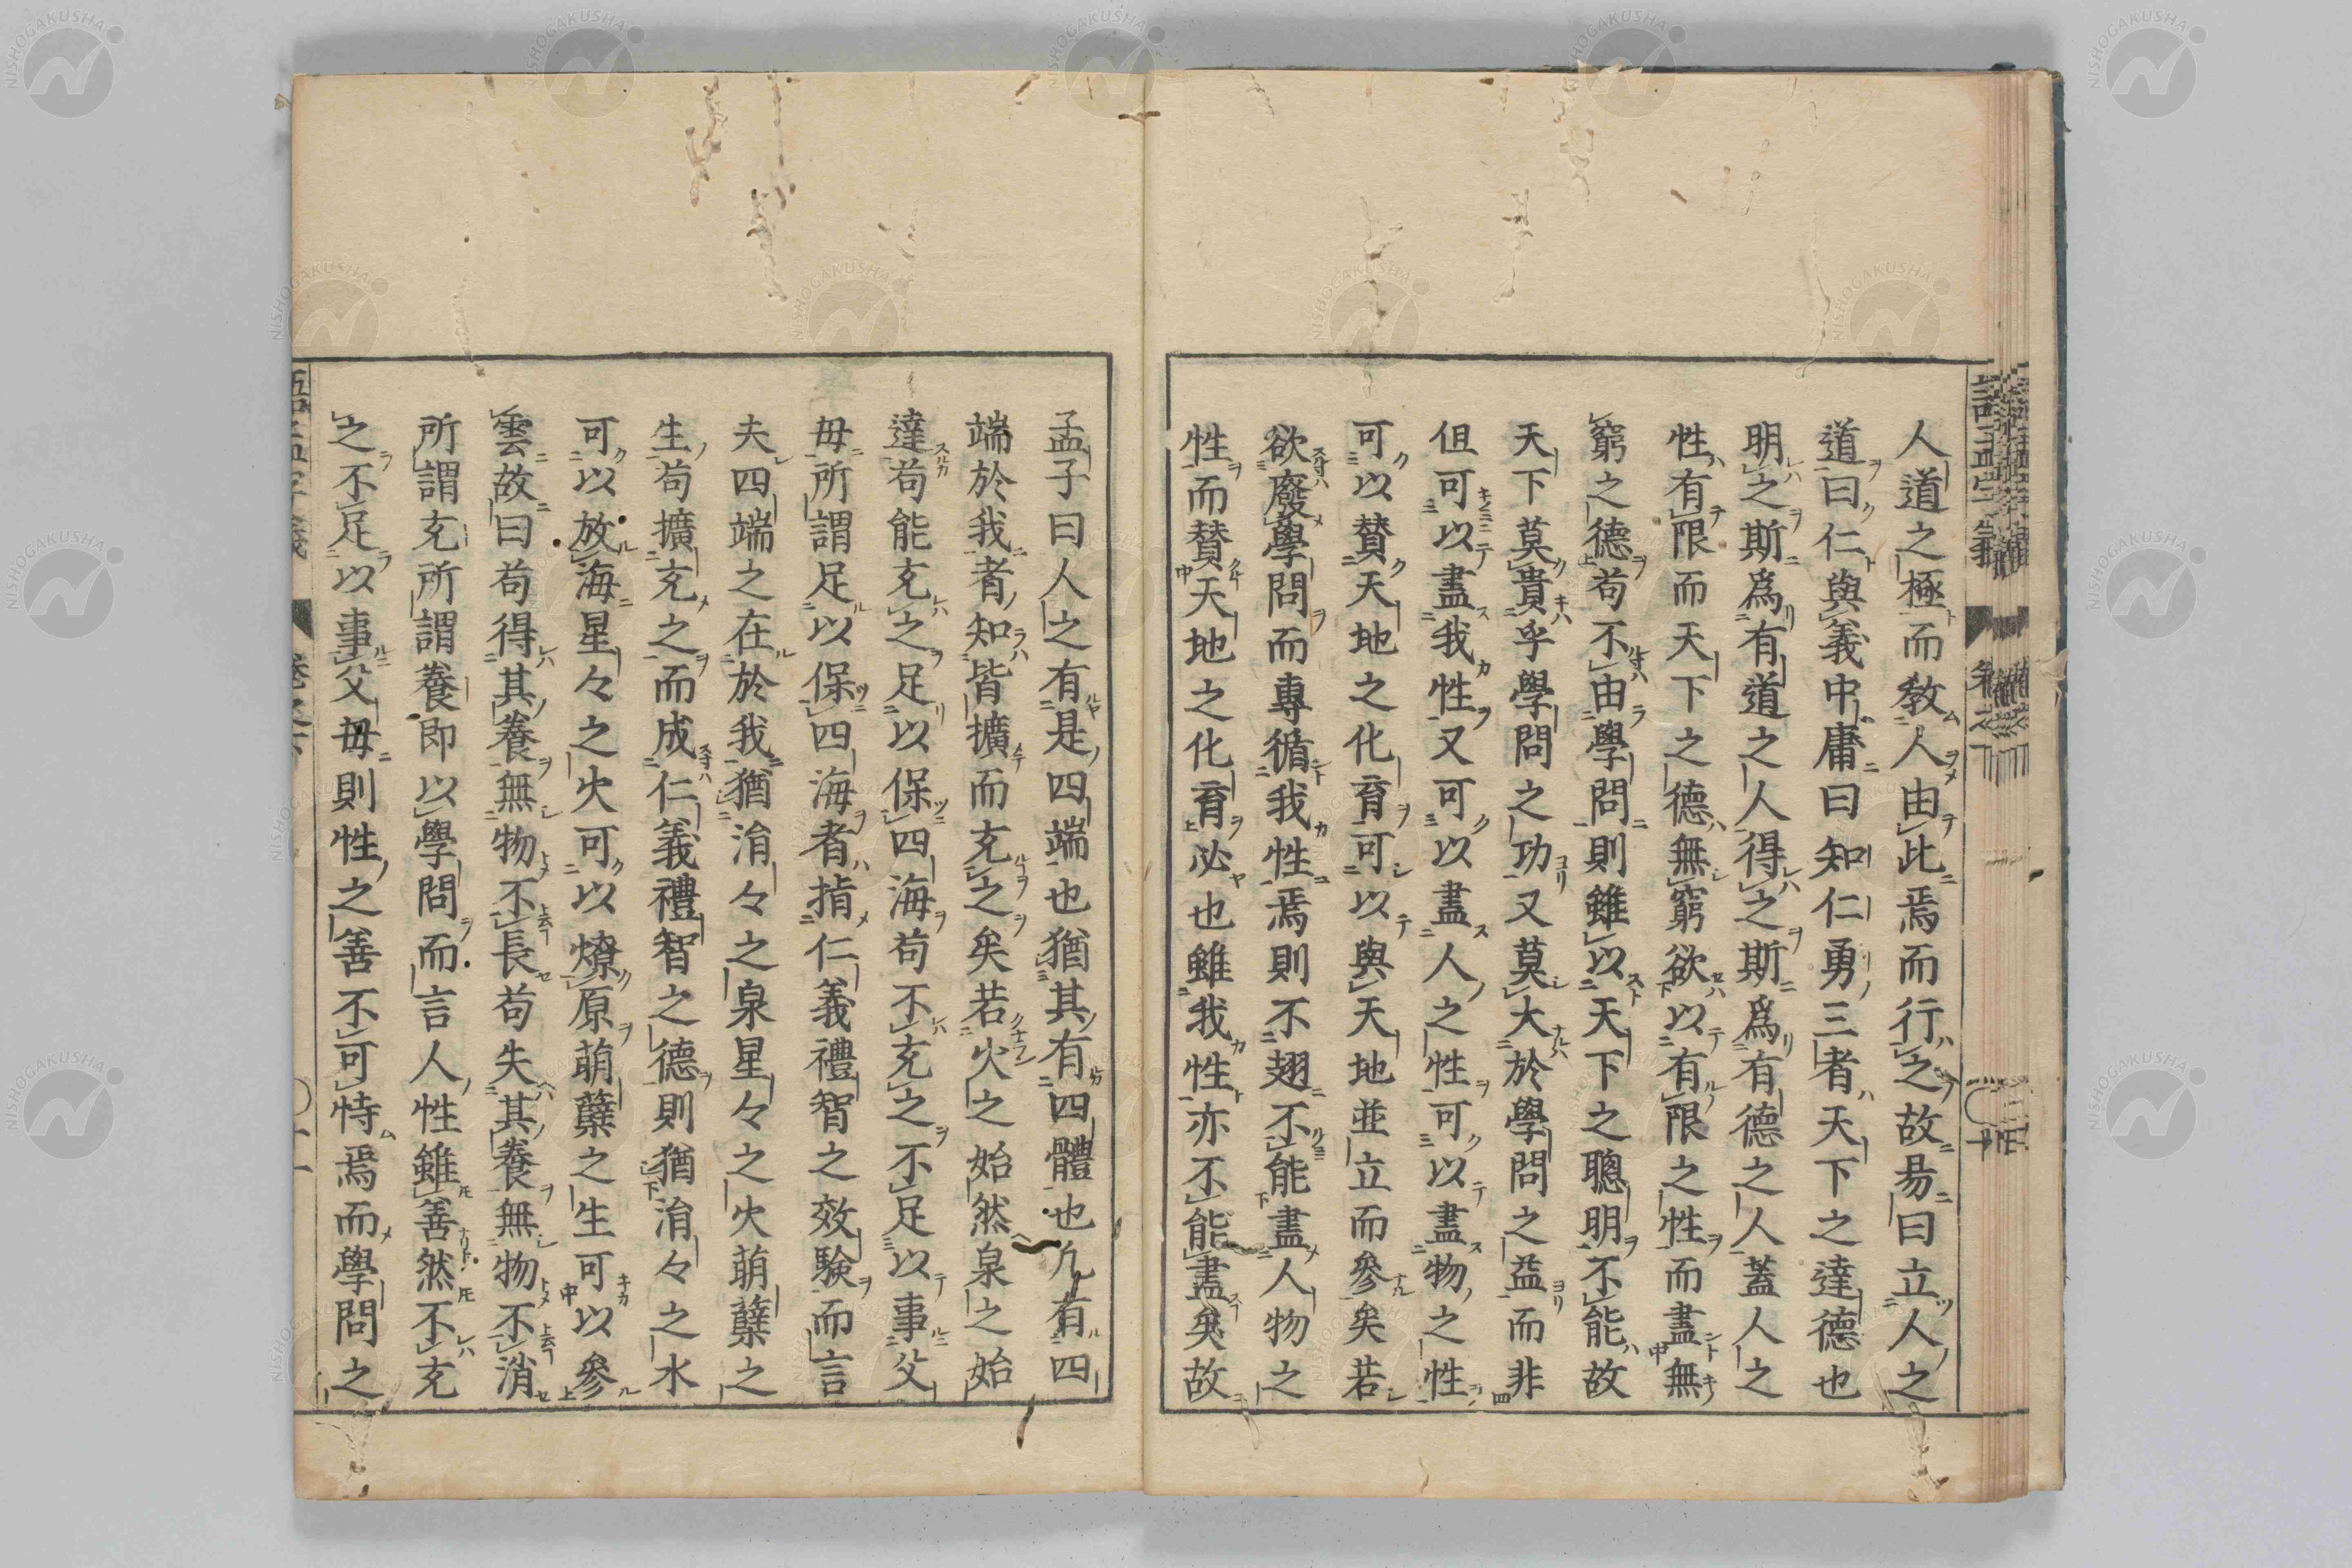 人道之極而教人由此焉而行之故易曰立人之
道曰仁與義中庸曰知仁勇三者天下之達德也
明之斯爲有道之人得之斯爲有德之人蓋人之
性有限而天下之德無窮欲以有限之性而盡無
窮之德苟不由學問則雖以天下之聰明不能故
天下莫貴乎學問之功又莫大於學問之益而非
但可以盡我性又可以盡人之性可以盡物之性
可以賛天地之化育可以與天地並立而參矣若
欲廢學問而專循我性焉則不翅不能盡人物之
性而賛天地之化育必也雖我性亦不能盡矣故
孟子曰人之有是四端也猶其有四體也凡有四
端於我者知皆擴而充之矣若火之始然泉之始
達苟能充之足以保四海苟不充之不足以事父
母所謂足以保四海者指仁義禮智之效驗而言
夫四端之在於我猶涓々之泉星々之火萌蘖之
生苟擴充之而成仁義禮智之德則猶涓々之水
可以放海星々之火可以燎原萌蘖之生可以參
雲故曰苟得其養無物不長苟失其養無物不消
所謂充所謂養即以學問而言人性雖善然不充
之不足以事父母則性之善不可恃焉而學問之